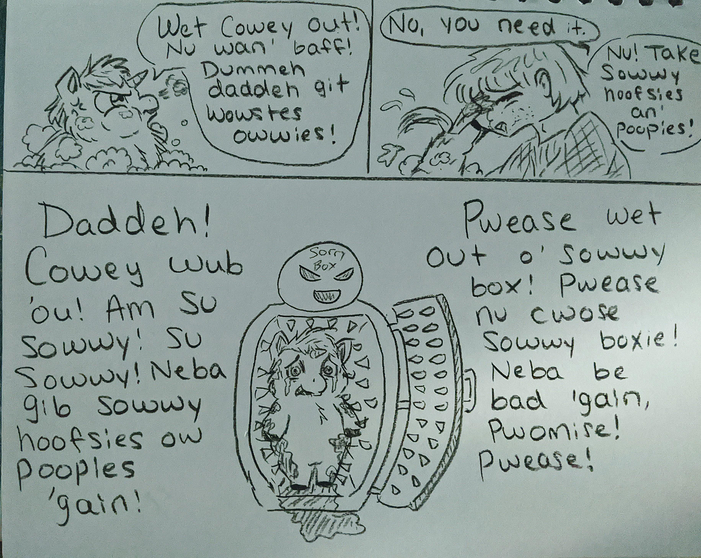 Wet Cowey out!
Nu wan' baff!
Dummeh
daddeh git
wowstes
owwies!
No, you need it.
Nu! Take
Sowwy
hoofsies
an'
poopies!
Daddeh!
Cowey wub
'ou! Am Su
Sowwy! Su
Sowwy! Neba
gib sowwy
hoofsies ow
pooples
'gain!
Sorry
Box
Pwease wet
out o' sowwy
box! Pwease
nu cwose
Sowwy boxie!
Neba be
bad 'gain,
Pwomise!
Pwease!